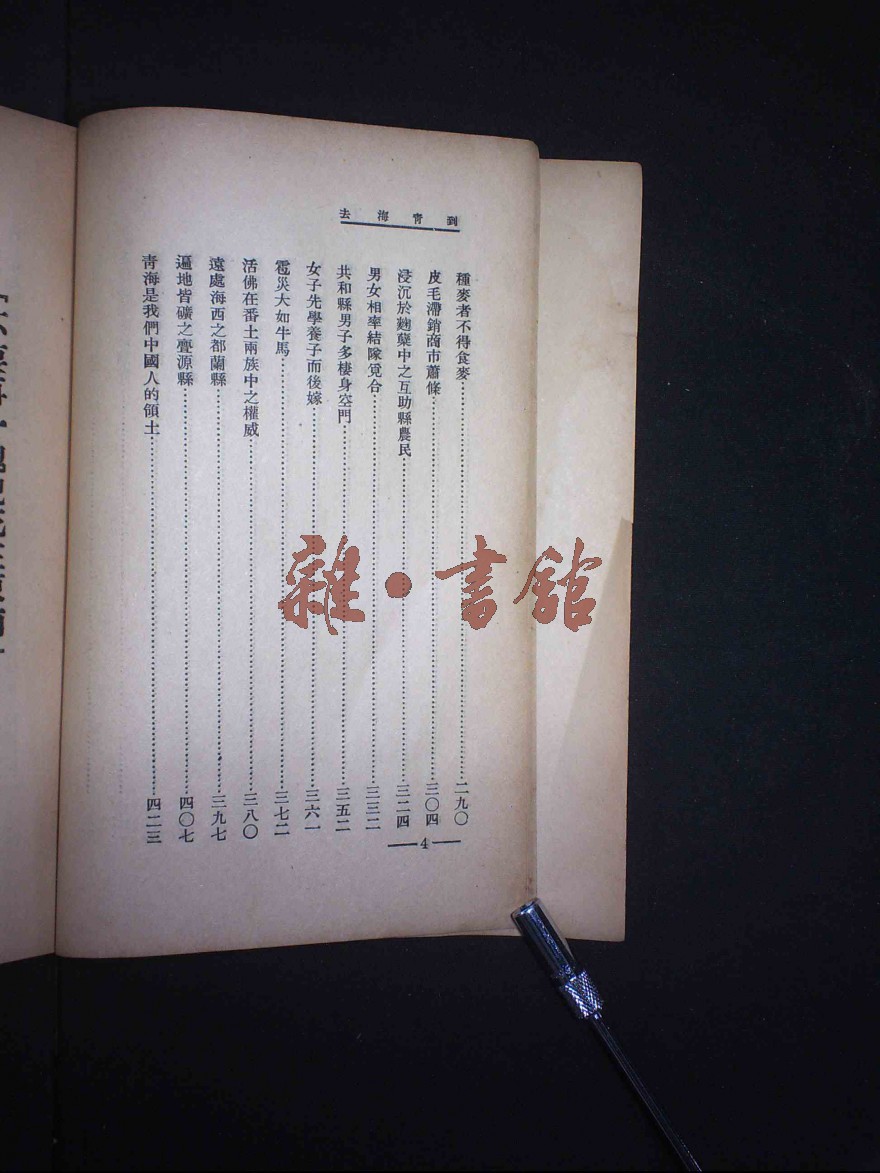 到青海去
種麥者不得食麥……二九〇
皮毛滯銷商市蕭條……三〇四
浸沉於麴櫱中之互助縣農民……三二四
男女相率結隊覓合……三三二
共和縣男子多棲身空門……三五二
女子先學養子而後嫁……三六一
雹災大如牛馬……三七二
活佛在番土兩族中之權威……三八〇
遠處海西之都蘭縣……三九七
遍地皆礦之亹源縣……四〇七
青海是我們中國人的領土……四二三
4
雜·書館